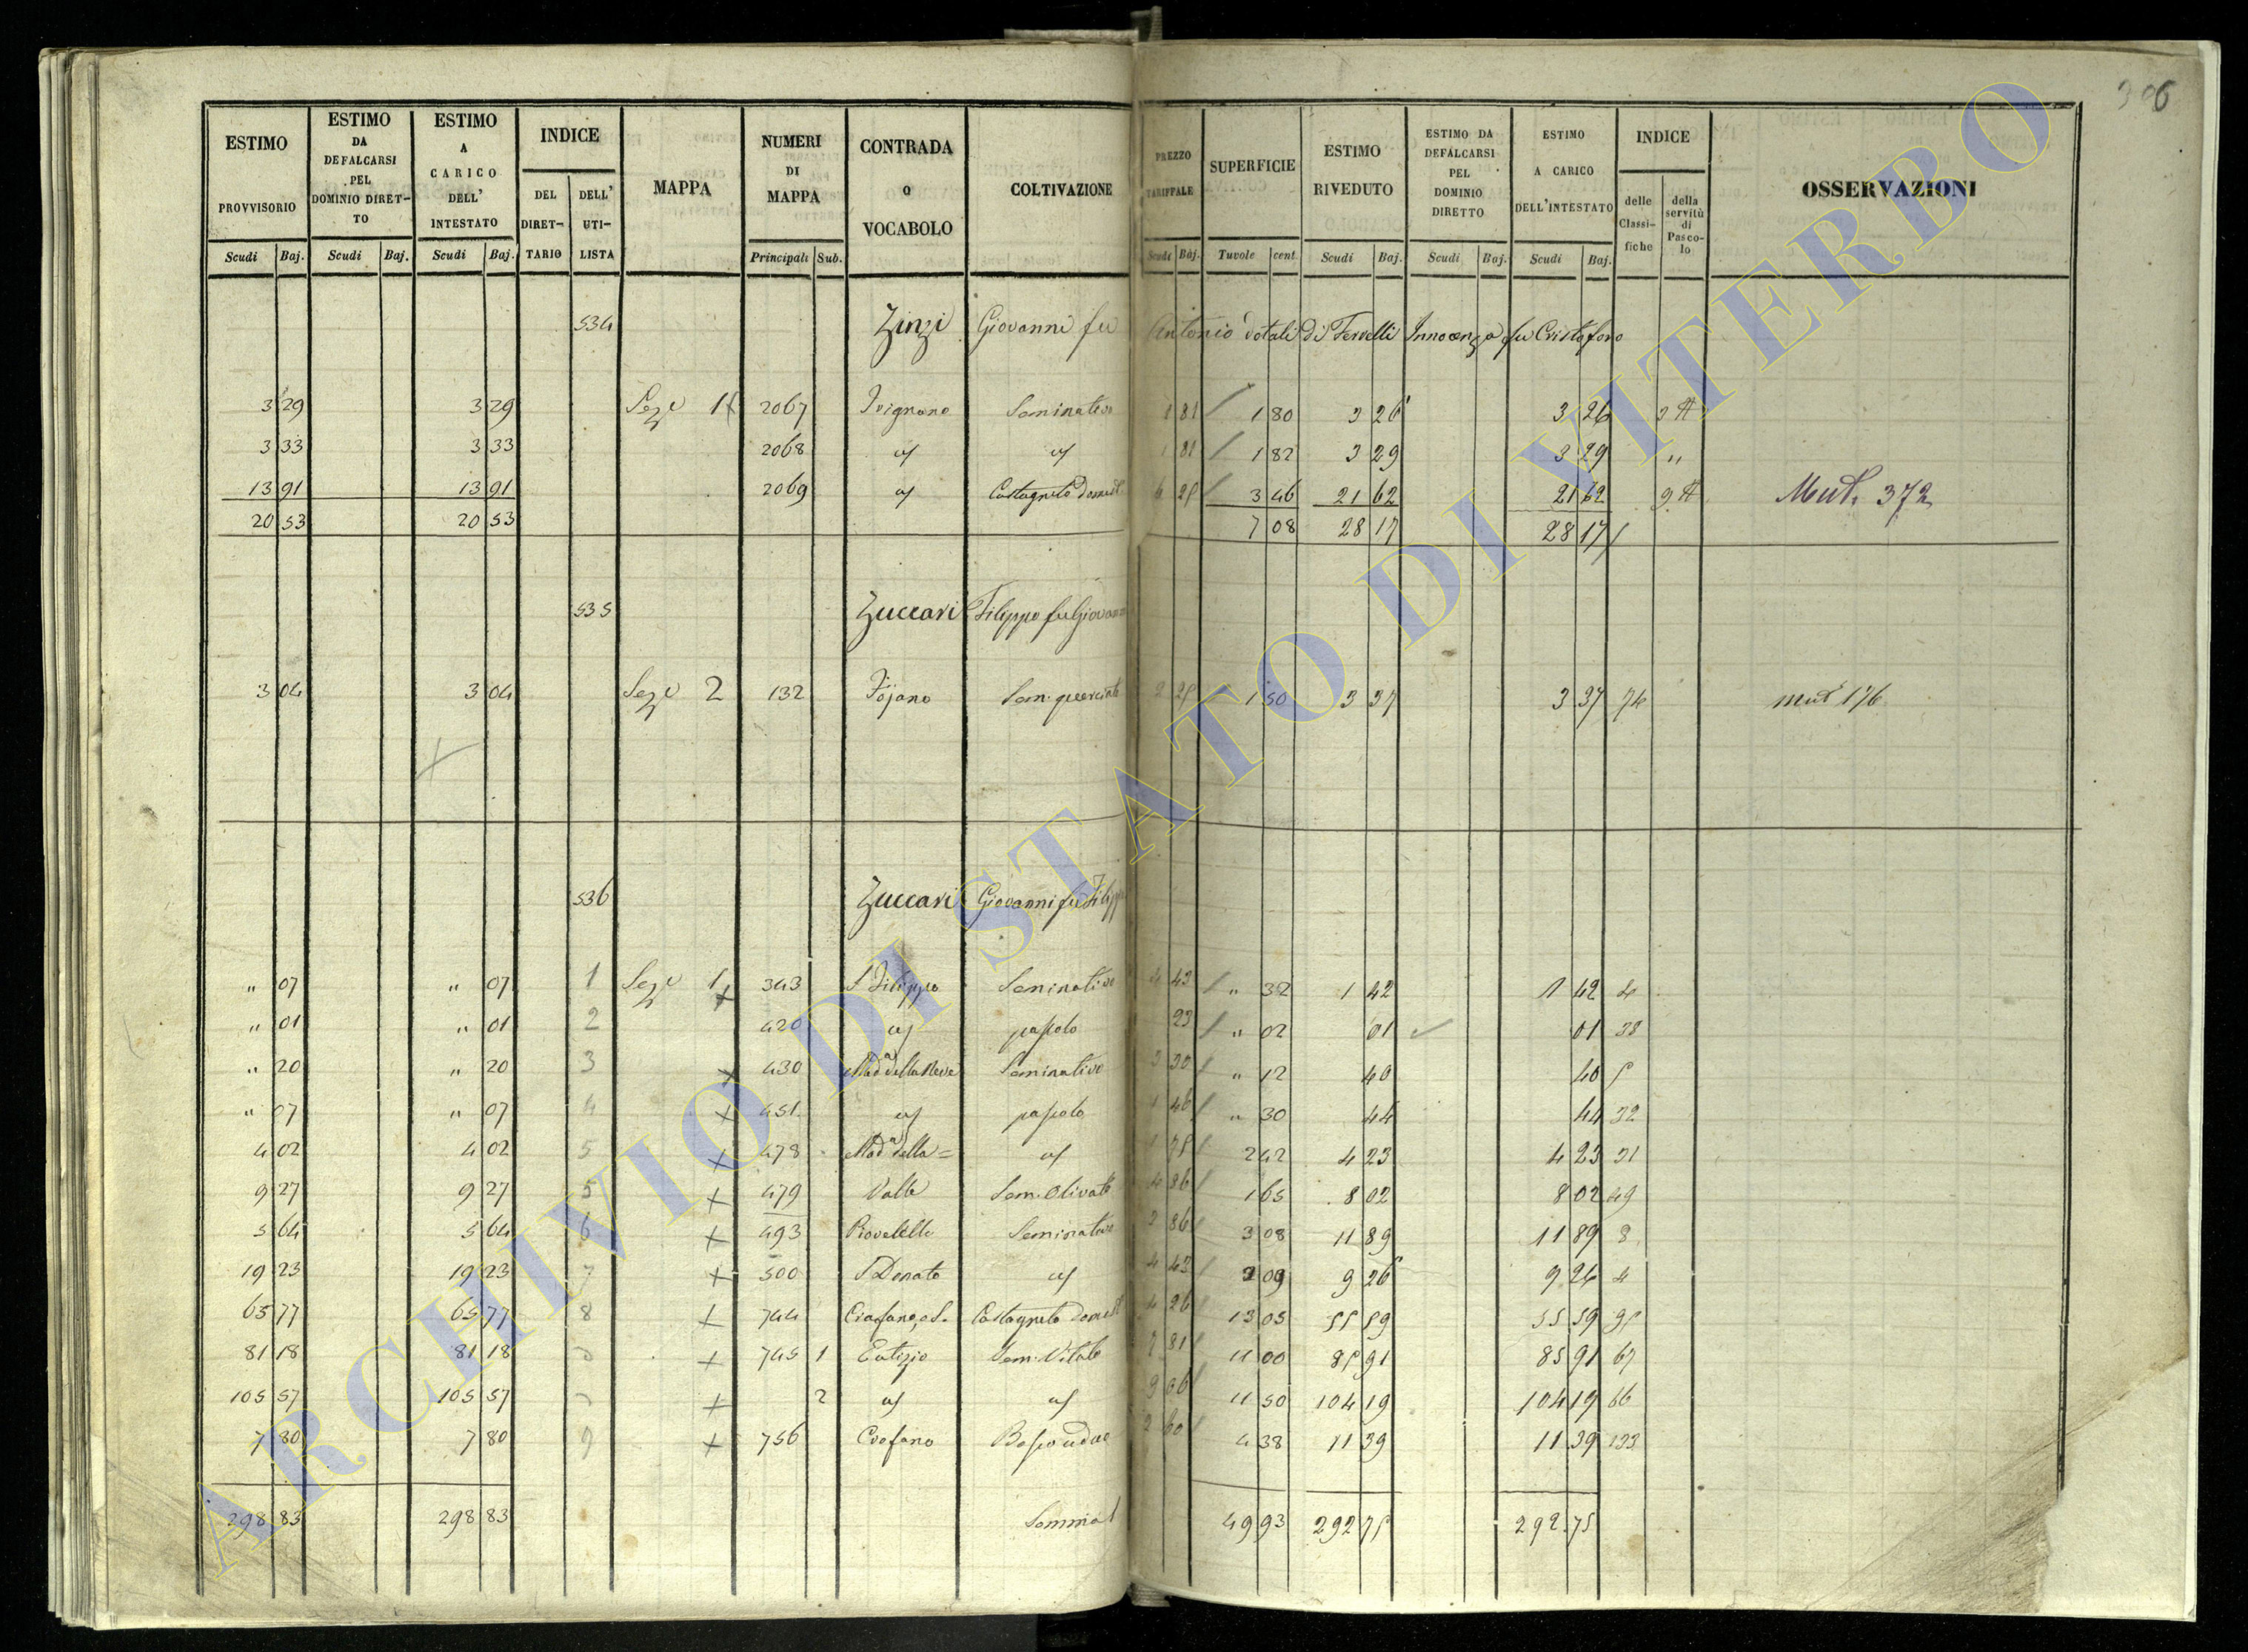 306
ESTIMO PROVVISORIO Scudi Baj. ESTIMO DA DEFALCARSI PEL DOMINIO DIRETTO Scudi Baj. ESTIMO A CARICO DELL' INTESTATO Scudi Baj. INDICE DEL DIRETTARIO DELL' UTILISTA MAPPA NUMERI DI MAPPA Principali Sub. CONTRADA O VOCABOLO COLTIVAZIONE PREZZO TARIFFALE Scudi Baj. SUPERFICIE Tavole cent. ESTIMO RIVEDUTO Scudi Baj. ESTIMO DA DEFALCARSI PEL DOMINIO DIRETTO Scudi Baj. ESTIMO A CARICO DELL'INTESTATO Scudi Baj. INDICE delle Classifiche della servitù di Pascolo OSSERVAZIONI
534 Zinzi Giovanni fu Antonio dotali di Fervelli Innocenza fu Cristoforo
3 29 3 29 Sez.e 1 2067 Ivignano Seminativo 1 81 1 80 3 26 3 26 3
3 33 3 33 2068 1 81 1 82 3 29 3 29 "
13 91 13 91 2069 Castagneto domest. 6 25 3 46 21 62 21 62 9 Mut. 372
20 53 20 53 7 08 28 17 28 17
535 Zuccari Filippo fu Giovanni
3 04 3 04 Sez.e 2 132 Fojano Sem. querciato 2 25 1 50 3 37 3 37 74 mut 176
536 Zuccari Giovanni fu Filippo
" 07 " 07 1 Sez.e 1 343 S Filippo Seminativo 4 43 " 32 1 42 1 42 4
" 01 " 01 2 420 pascolo 23 " 02 01 01 38
" 20 " 20 3 430 Mad.a della Neve Seminativo 3 30 " 12 40 40 5
" 07 " 07 4 451 pascolo 1 46 " 30 44 44 32
4 02 4 02 5 478 Mad.a della = 1 75 2 42 4 23 4 23 31
9 27 9 27 5 479 Valle Sem. Olivato 4 86 1 65 8 02 8 02 49
5 64 5 64 6 493 Piovelello Seminativo 3 86 3 08 11 89 11 89 8
19 23 19 23 7 500 S Donato 4 43 2 09 9 26 9 26 4
65 77 65 77 8 744 Ciafano, e S. Castagneto domest 4 26 13 05 55 59 55 59 95
81 18 81 18 745 1 Eutizio Sem. Vitato 7 81 11 00 85 91 85 91 67
105 57 105 57 2 9 06 11 50 104 19 104 19 66
7 80 7 80 9 756 Ciofano Bosco ceduo 2 60 4 38 11 39 11 39 133
298 83 298 83 Somma 49 93 292 75 292 75
ARCHIVIO DI STATO DI VITERBO